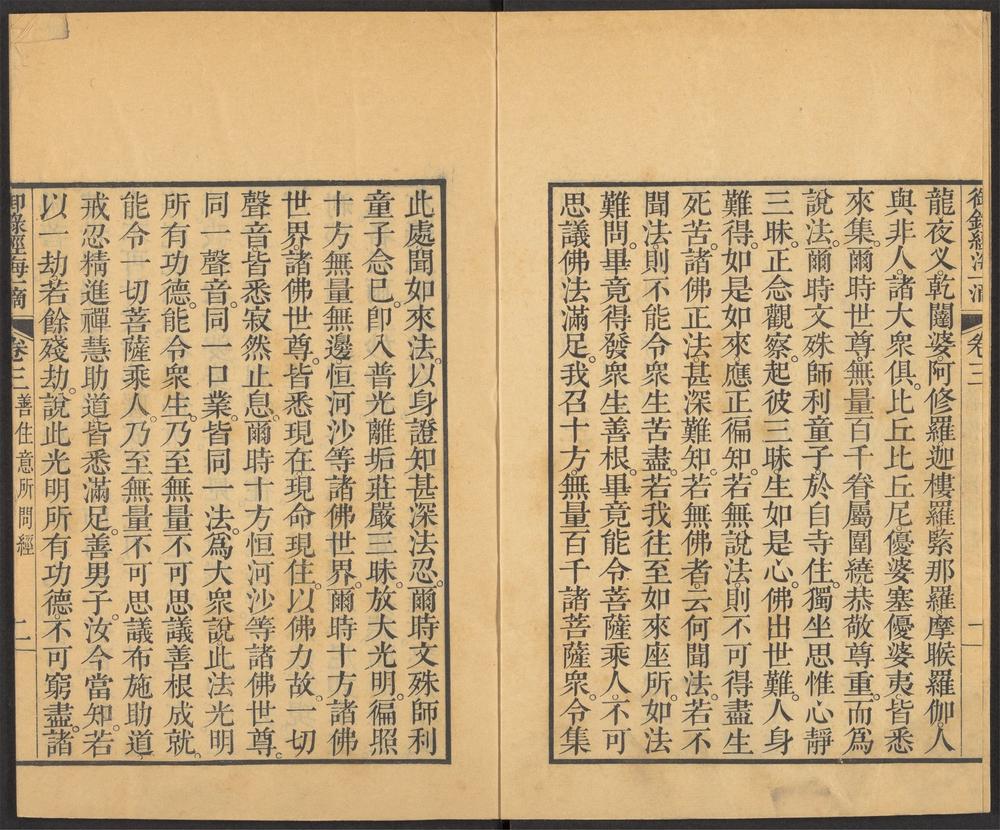 御錄經海一滴 卷三 一
龍夜叉。乾闥婆。阿修羅。迦樓羅。緊那羅。摩睺羅伽。人
與非人。諸大衆俱。比丘比丘尼。優婆塞優婆夷。皆悉
來集。爾時世尊。無量百千眷屬圍繞。恭敬尊重。而爲
說法。爾時文殊師利童子。於自寺住。獨坐思惟。心靜
三昧。正念觀察。起彼三昧。生如是心。佛出世難。人身
難得。如是如來。應正徧知。若無說法。則不可得盡生
死苦。諸佛正法。甚深難知。若無佛者。云何聞法。若不
聞法。則不能令衆生苦盡。若我往至如來座所。如法
難問。畢竟得發衆生善根。畢竟能令菩薩乘人。不可
思議佛法滿足。我召十方無量百千諸菩薩衆。令集
此處聞如來法。以身證知甚深法忍。爾時文殊師利
童子念已。卽入普光離垢莊嚴三昧。放大光明。徧照
十方無量無邊恒河沙等諸佛世界。爾時十方諸佛
世界。諸佛世尊。皆悉現在。現命現住。以佛力故。一切
聲音皆悉寂然止息。爾時十方恒河沙等諸佛世尊。
同一聲音。同一口業。皆同一法。爲大衆說此法光明
所有功德。能令衆生。乃至無量不可思議善根成就。
能令一切菩薩乘人。乃至無量不可思議布施助道。
戒忍精進禪慧助道皆悉滿足。善男子。汝今當知。若
以一劫。若餘殘劫。說此光明所有功德。不可窮盡。諸
御錄經海一滴 卷三 善住意所問經 二